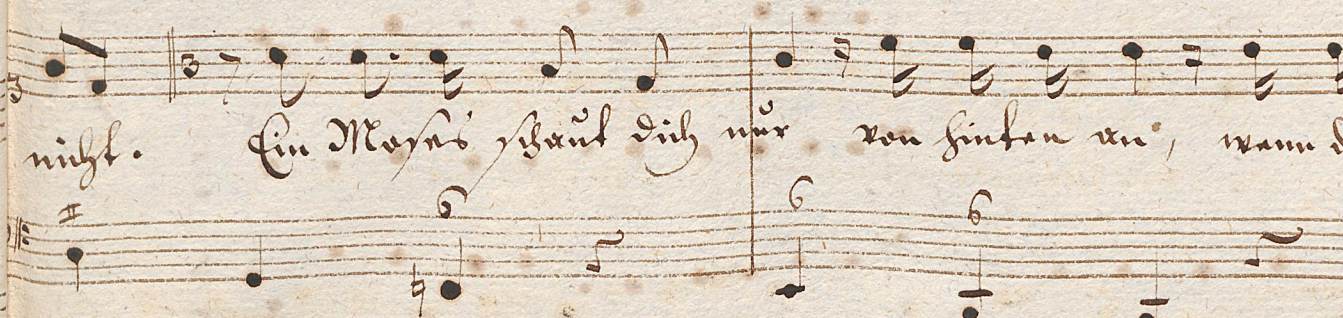 nicht. Ein Moses schaut dich nur von hinten an, wenn
6 6 6